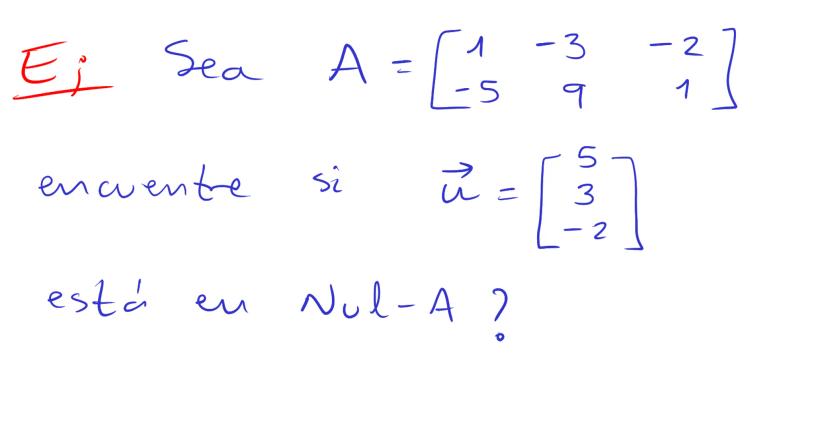 Ej Sea A = [1 -3 -2
-5 9 1]
encuentre si u⃗ = [5
3
-2]
está en Nul-A ?